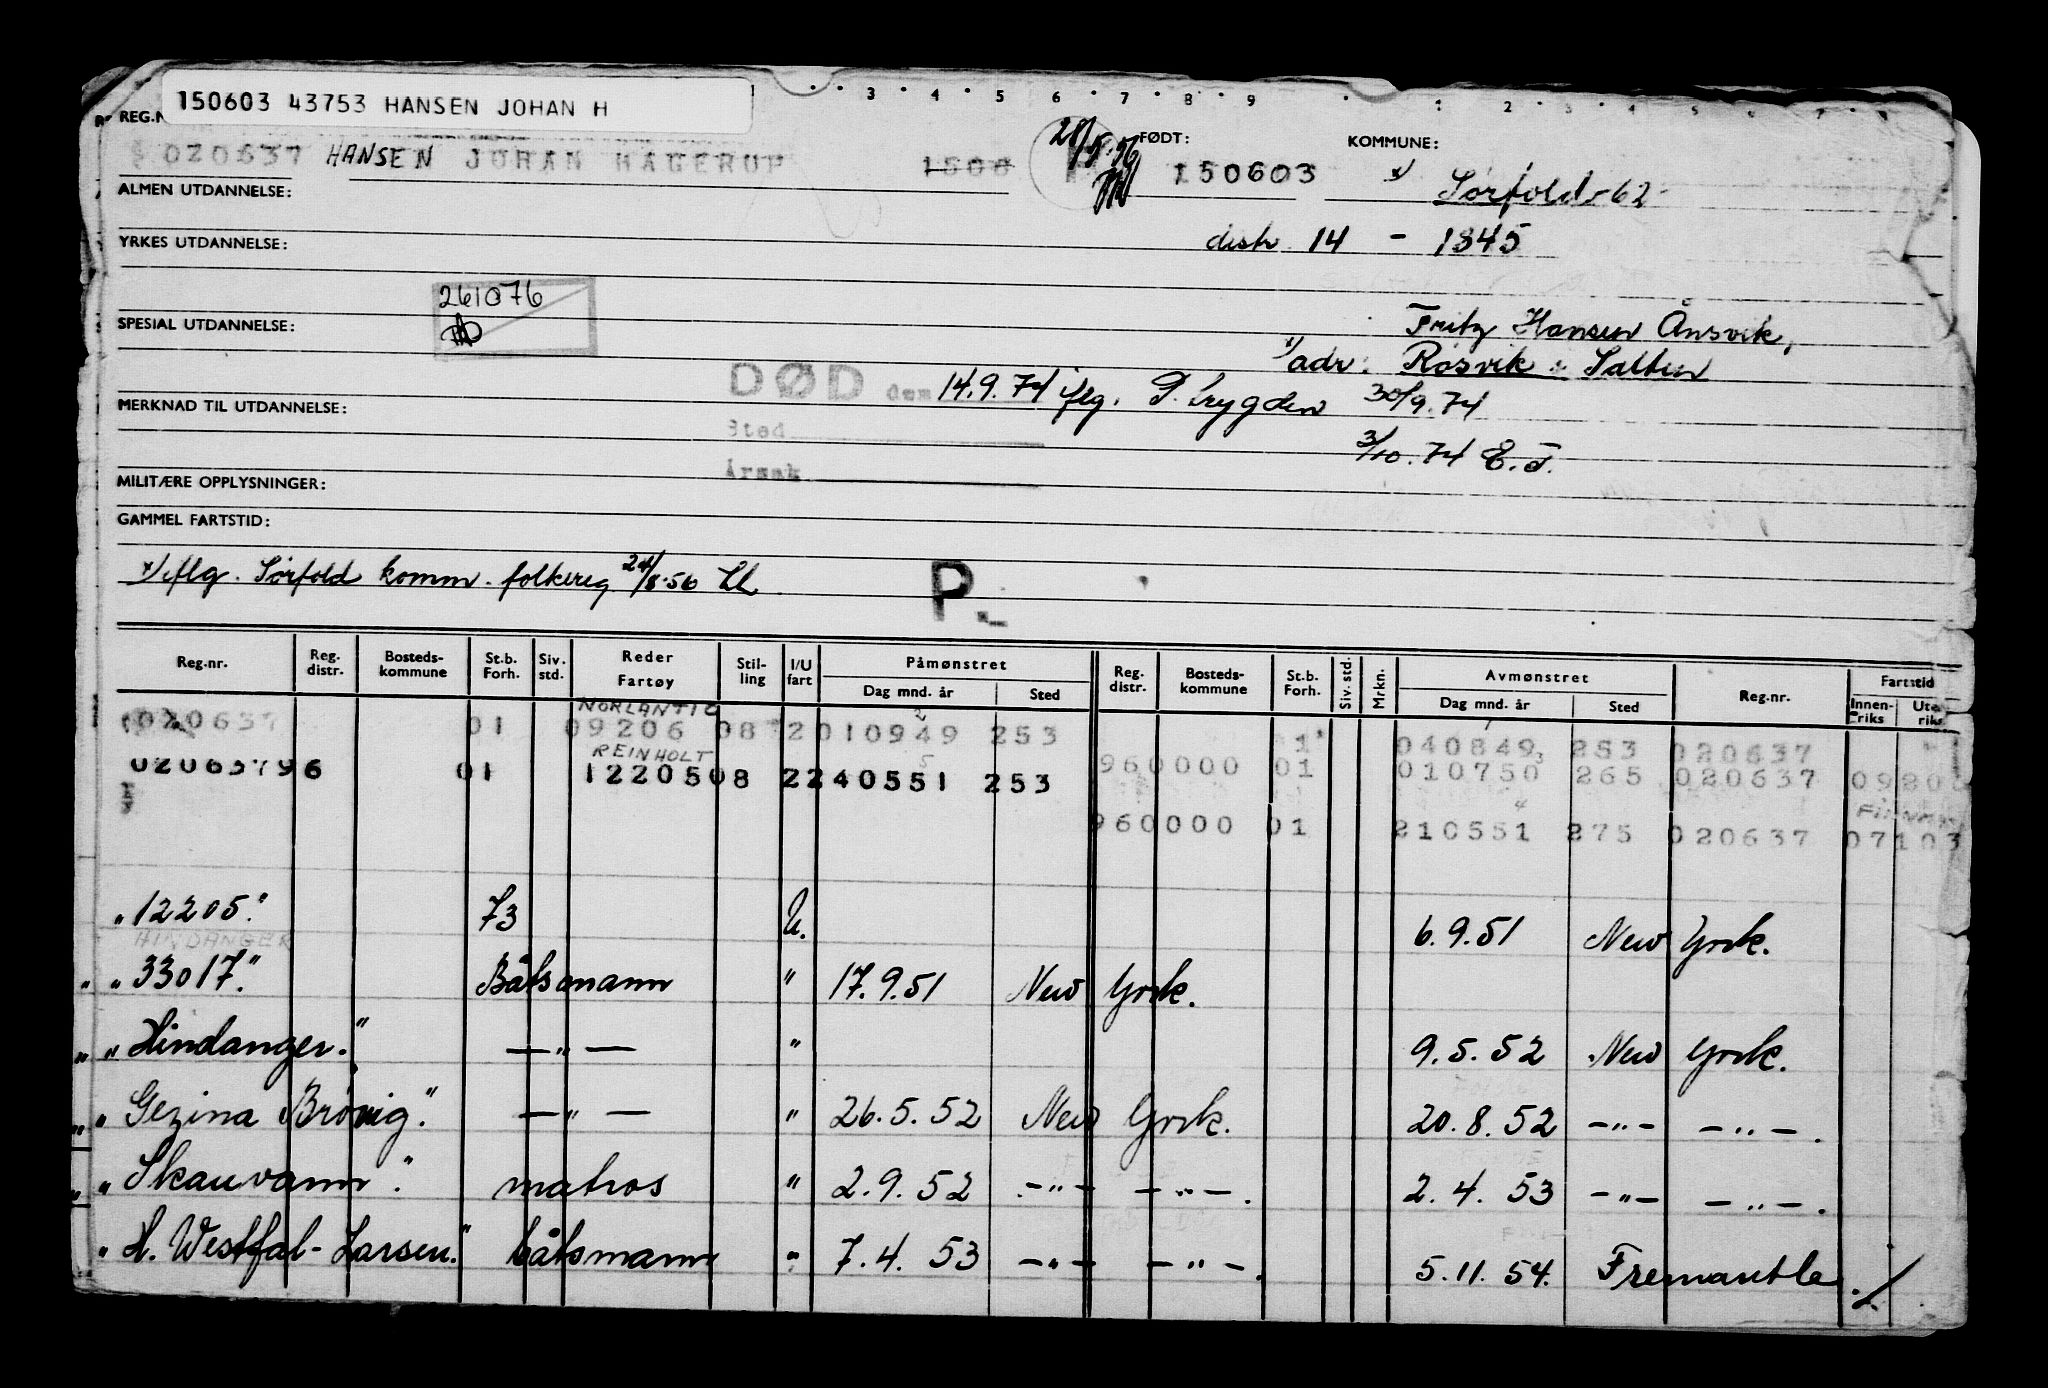 150603 43753 HANSEN JOHAN H
3 4 5 6 7 8 9 1 2 3 4 5 6 7 8
REG.N
020637 HANSEN JOHAN HAGERUP 1506 28/5-56 FØDT: 150603 KOMMUNE: x) Sørfold-62
ALMEN UTDANNELSE:
distr. 14 - 1845
YRKES UTDANNELSE:
261076
Fritz Hansen Ånsvik,
SPESIAL UTDANNELSE:
x) adr: Røsvik i Salten
DØD den 14.9.74 iflg. P. Trygden 30/9.74
MERKNAD TIL UTDANNELSE:
Sted
3/10.74 E.T.
Årsak
MILITÆRE OPPLYSNINGER:
GAMMEL FARTSTID:
x) iflg. Sørfold komm. folkereg 24/8-56 LL
P.
Reg.nr. Reg. distr. Bosteds-kommune St.b. Forh. Siv. std. Reder Fartøy Stil-ling I/U fart Påmønstret Reg. distr. Bosteds-kommune St.b. Forh. Siv. std. Mrkn. Avmønstret Reg.nr. Fartstid
Dag mnd. år Sted Dag mnd. år Sted Innen-riks Uten riks
NORLANTIC 2 1
020637 01 09206 08 2 010949 253 1 040849 253 020637
REINHOLT 5 3
02063796 01 12205 08 2 240551 253 960000 01 010750 265 020637 0920
4 FINNMA
960000 01 210551 275 020637 07103
"12205." 73 U. 6.9.51 New York.
HINDANGER
" "33017." Båtsmann " 17.9.51 New York.
" "Hindanger." —"— " 9.5.52 New York.
" "Gezina Brøvig." —"— " 26.5.52 New York. 20.8.52 -"- -"-.
" "Skauvann". matros " 2.9.52 -"- -"-. 2.4.53 -"- -"-.
"H. Westfal-Larsen." båtsmann " 7.4.53 -"- -"-. 5.11.54. Fremantle ./